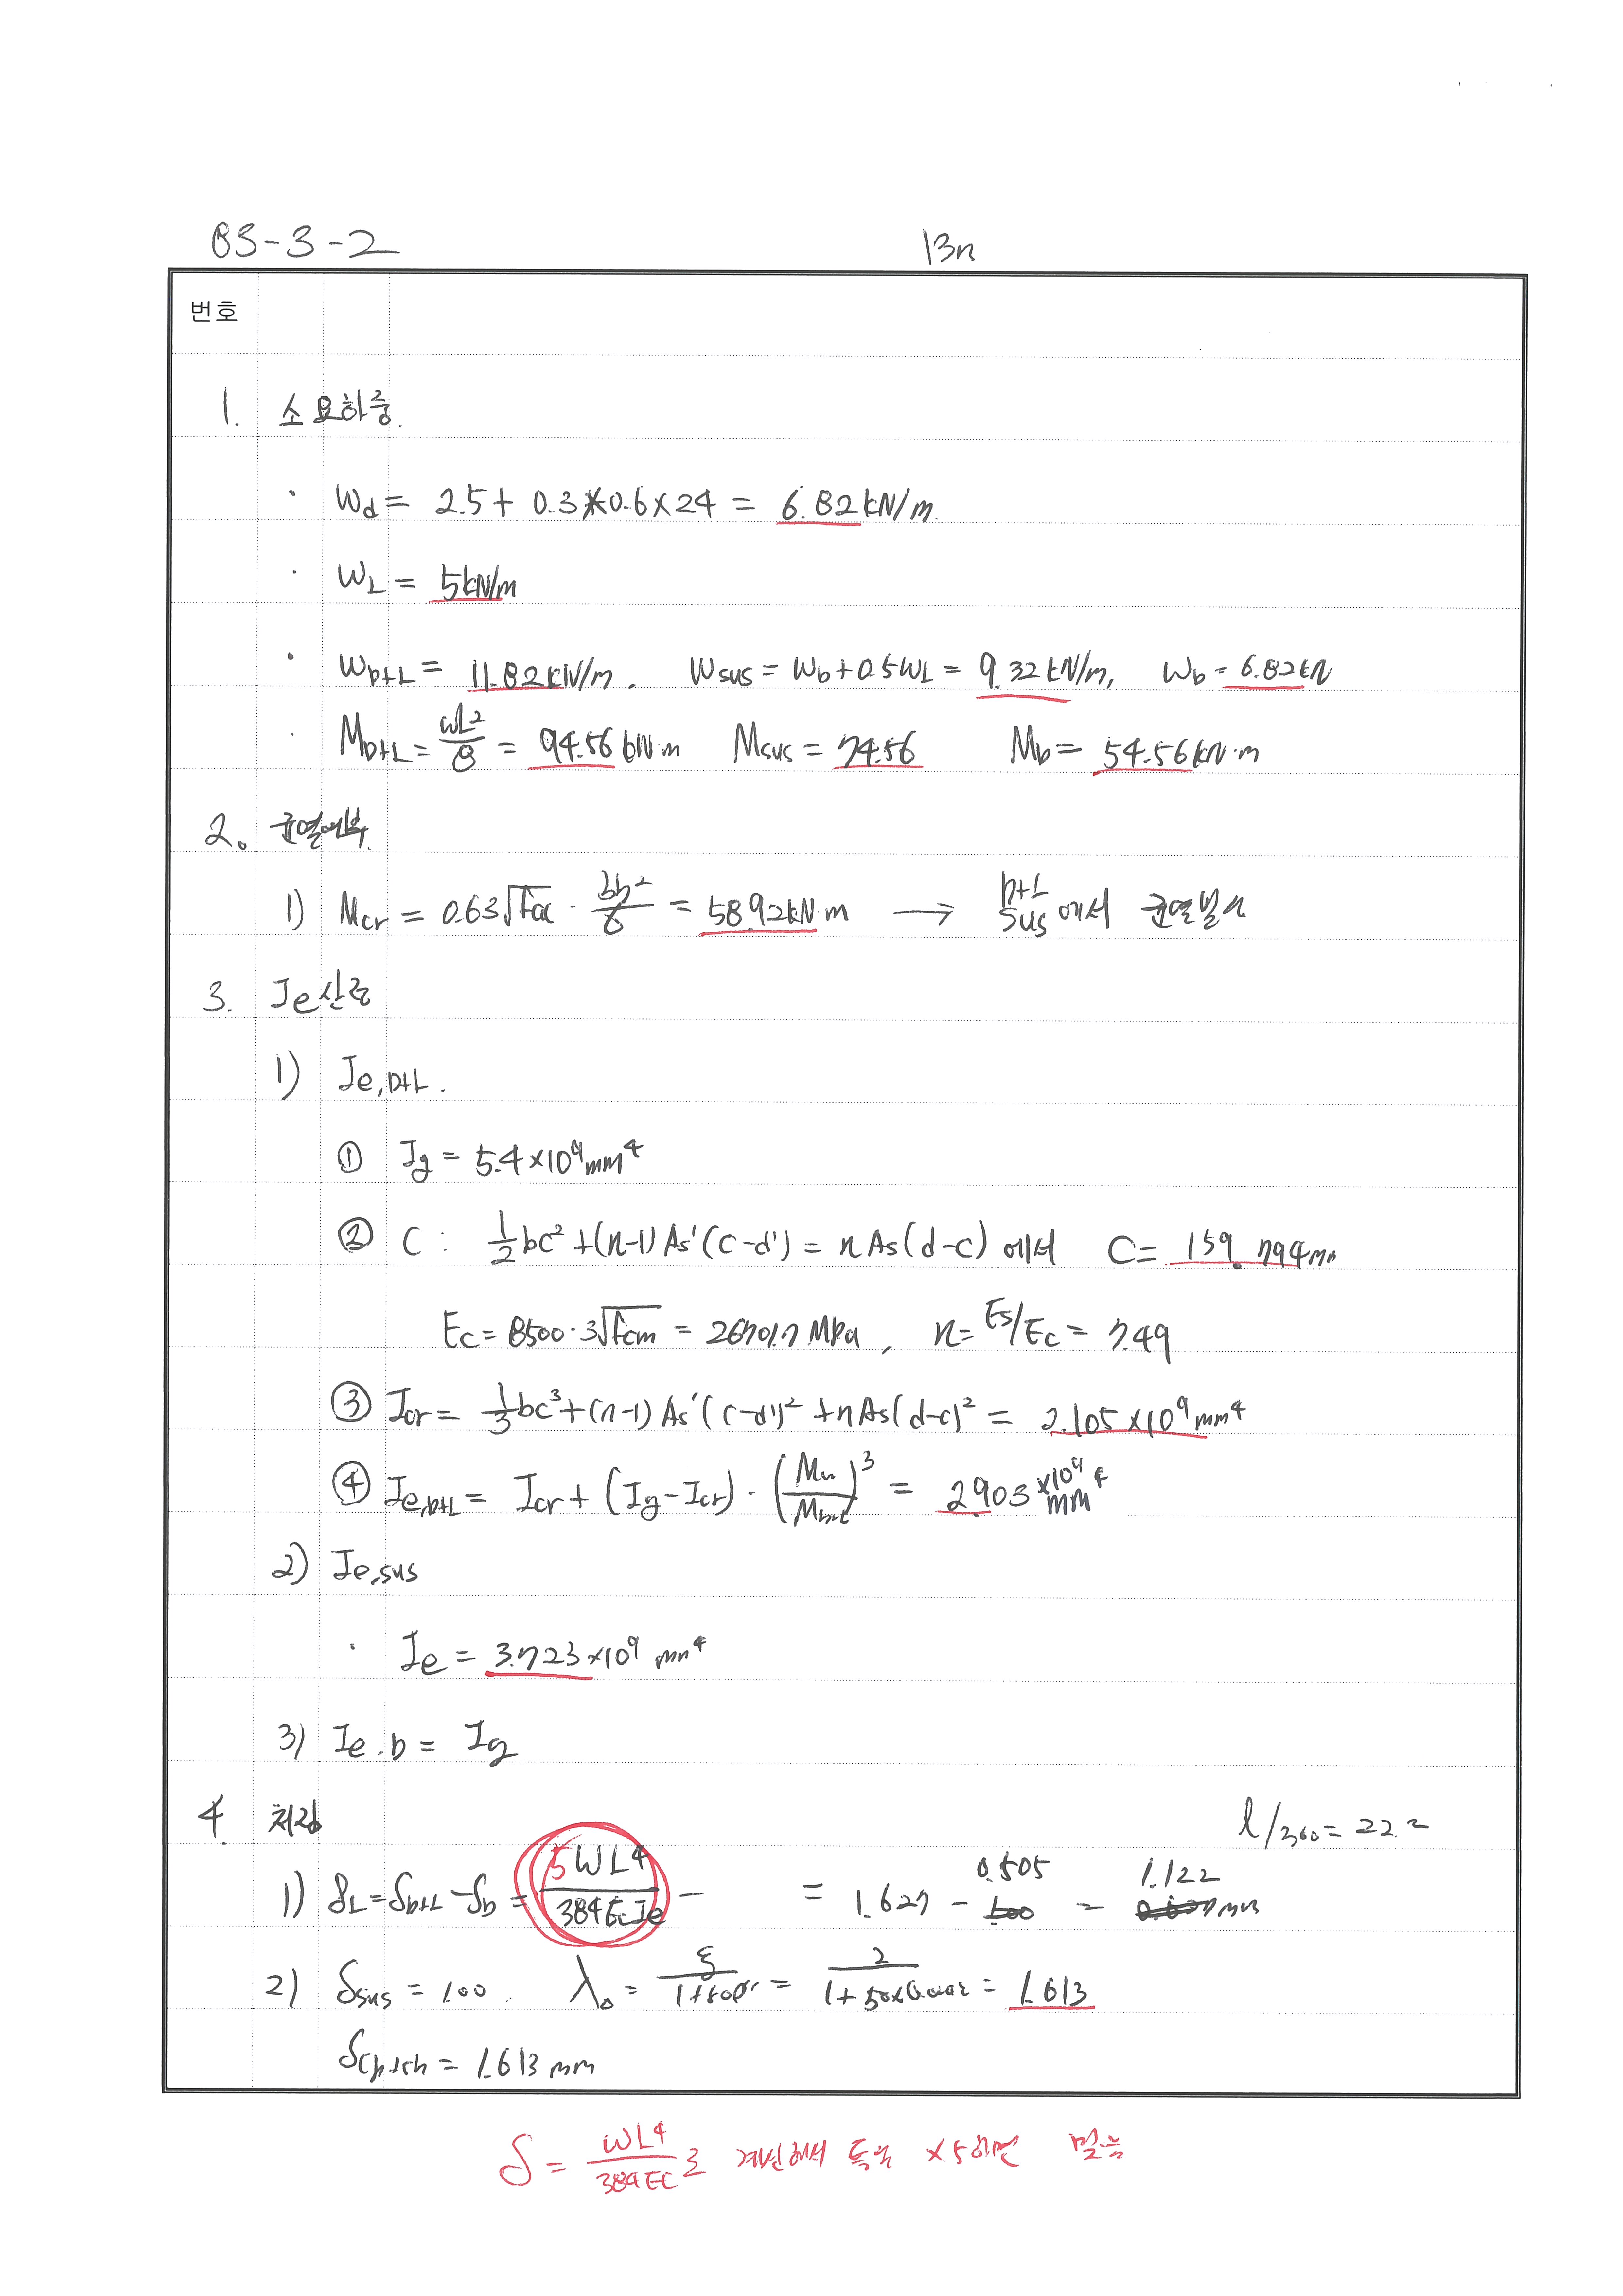 83-3-2 13n
번호
1. 소요하중.
· Wd = 2.5 + 0.3×0.6×24 = 6.82kN/m
· WL = 5kN/m
· WD+L = 11.82kN/m. Wsus = WD+0.5WL = 9.32kN/m, WD = 6.82kN
· MD+L = wL²/8 = 94.56kN·m Msus = 74.56 MD = 54.56kN·m
2. 균열여부.
1) Mcr = 0.63√fck · bh²/6 = 58.92kN·m → D+L sus 에서 균열발생
3. Ie 산정
1) Ie,D+L.
① Ig = 5.4×10⁹mm⁴
② C : 1/2bc²+(n-1)As'(c-d') = nAs(d-c) 에서 C = 159.794mm
Ec = 8500·3√fcm = 26701.7 MPa, n = Es/Ec = 7.49
③ Icr = 1/3bc³+(n-1)As'(c-d')²+nAs(d-c)² = 2.105×10⁹mm⁴
④ Ie,D+L = Icr + (Ig-Icr)·(Mcr/MD+L)³ = 2.903×10⁹mm⁴
2) Ie,sus
· Ie = 3.723×10⁹ mm⁴
3) Ie.D = Ig
4. 처짐 l/360 = 22.2
1) δL = δD+L - δD = 5WL⁴/384EcIe - = 1.627 - 0.505 = 1.122 mm
2) δsus = 1.00. λΔ = ξ/1+50ρ' = 2/1+50×0.0048 = 1.613
δcp+sh = 1.613 mm
δ = WL⁴/384EC로 계산해서 ×5하면 맞음